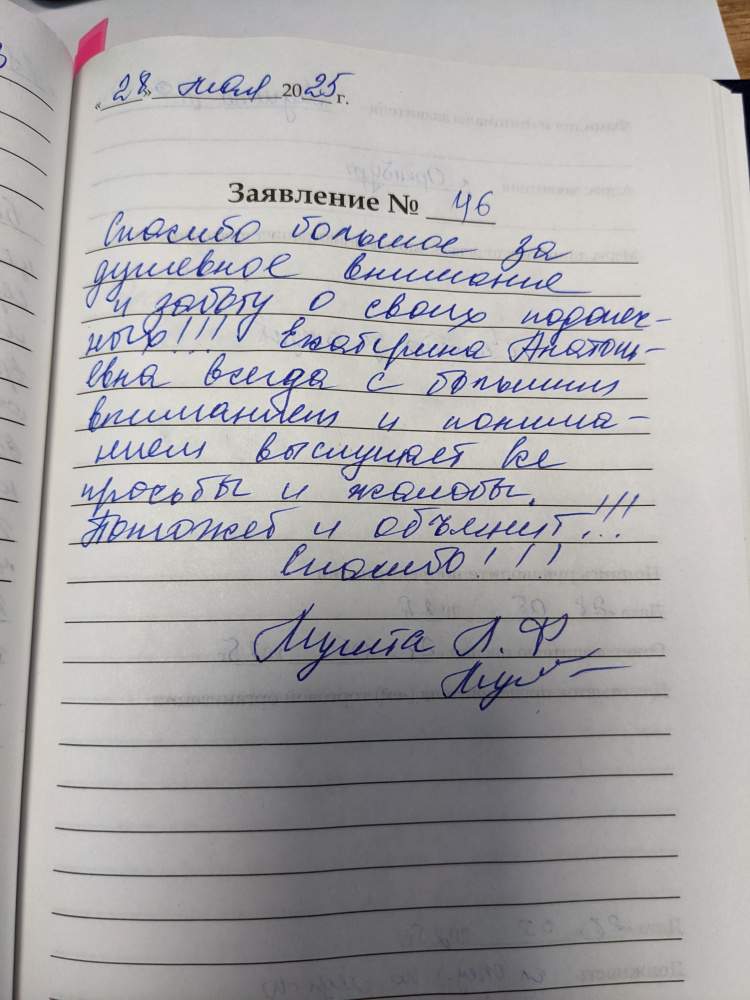 « 28 » мая 2025 г.
Заявление № 46
Спасибо большое за
душевное внимание
и заботу о своих подопеч-
ных!!! Екатерина Анатоль-
евна всегда с большим
вниманием и понима-
нием выслушает все
просьбы и жалобы.
Поможет и объяснит!!!
Спасибо!!!
Л. Ф